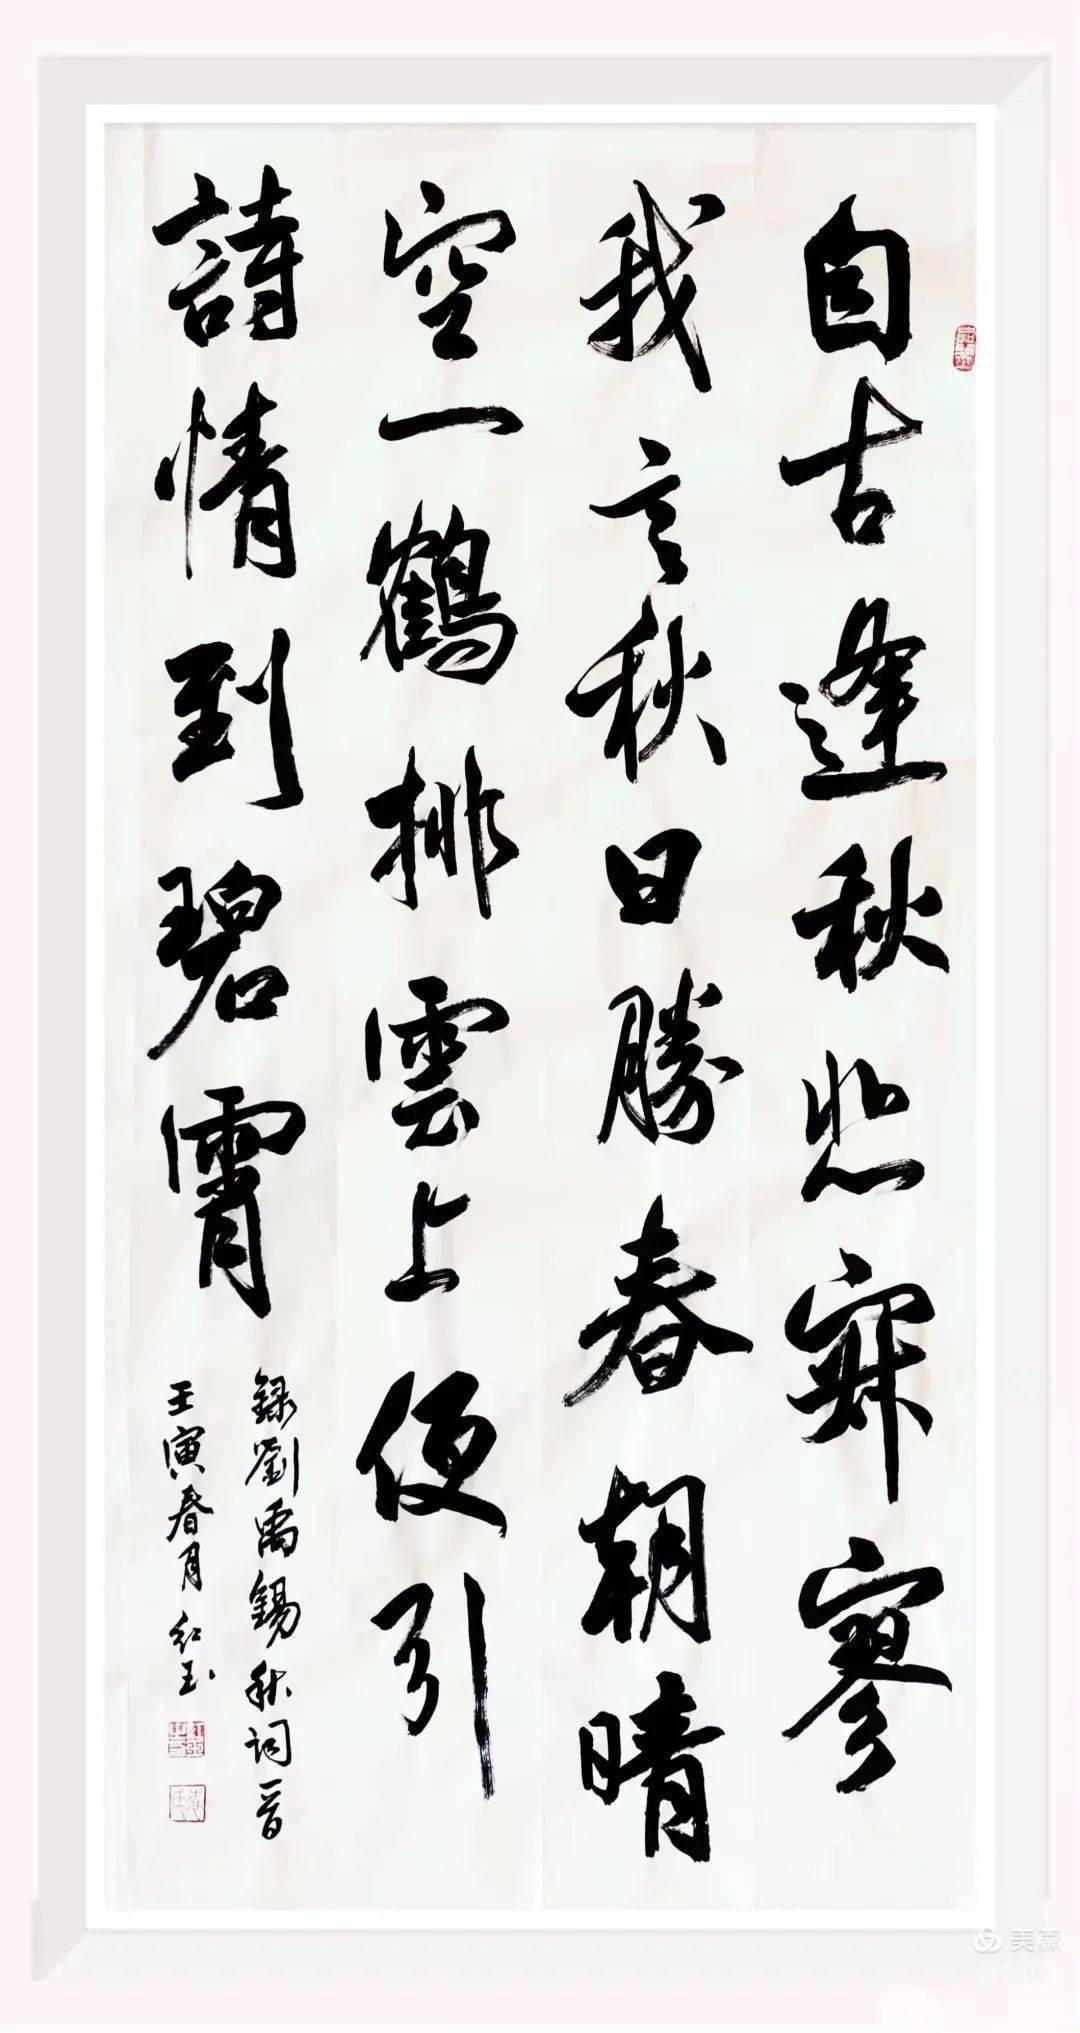 自古逢秋悲寂寥
我言秋日勝春朝晴
空一鶴排雲上便引
詩情到碧霄
録劉禹錫秋词一首
壬寅春月红玉
美篇